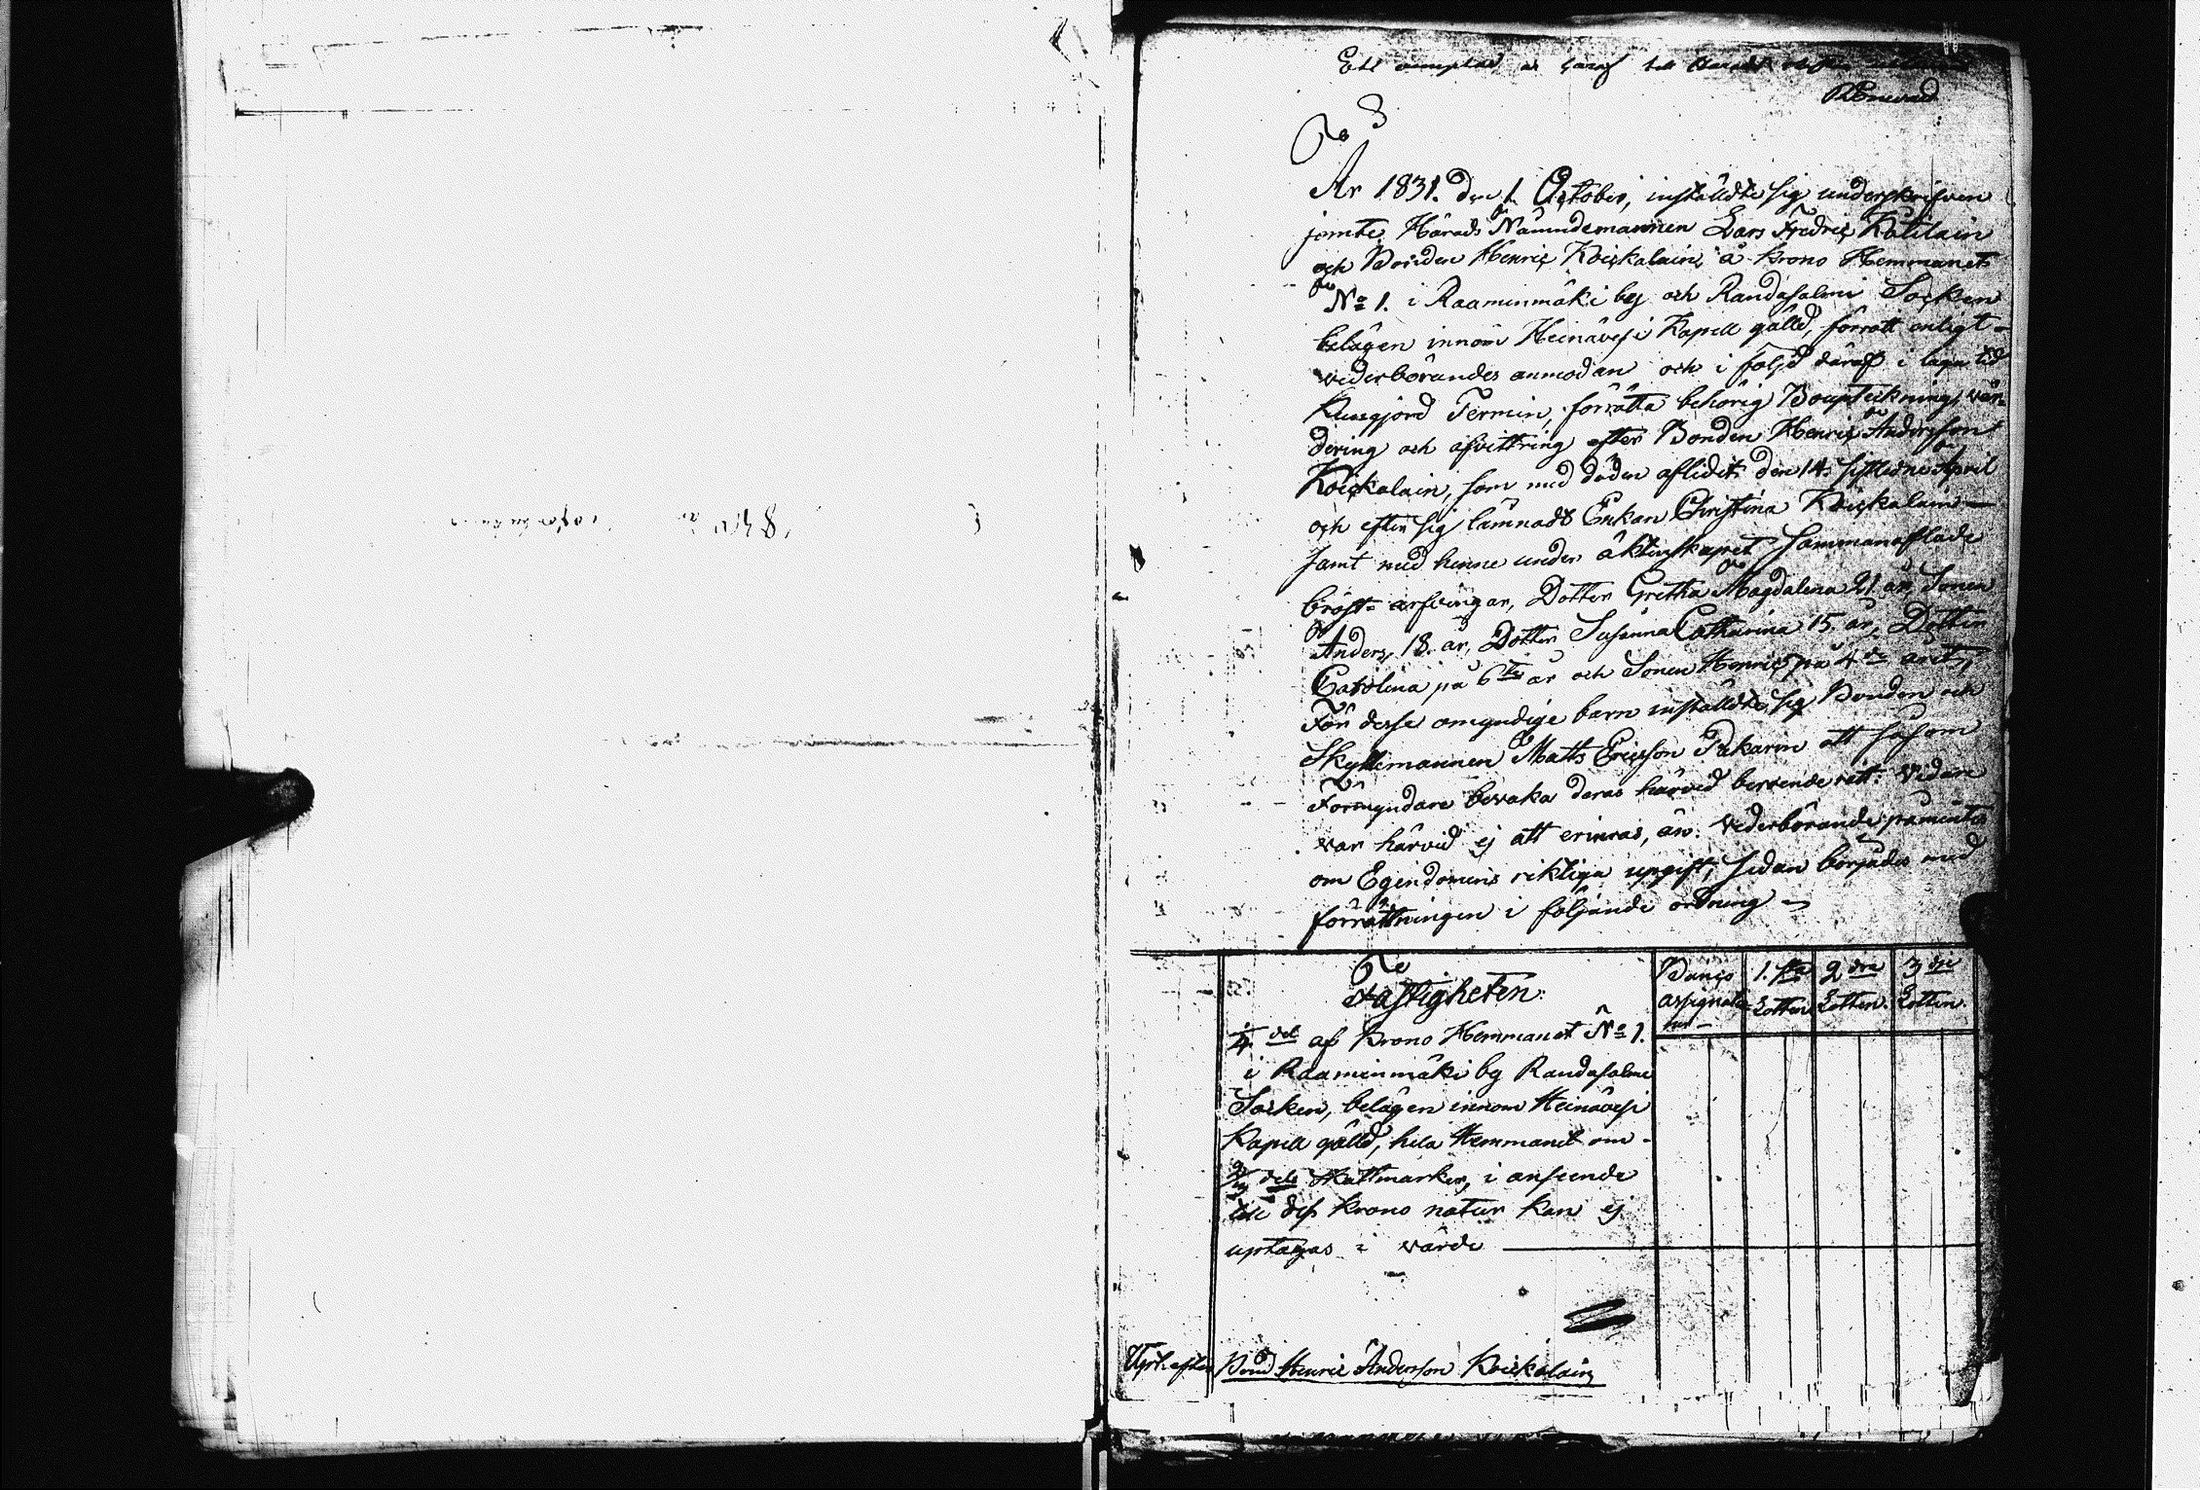 Ett exemplar är häraf till
No 3
År 1831. den 1 October, inställdte sig underskrifven
jemte Härads Nämndemannen Lars Fredric
och Bonden Henric Koickalain, å Krono Hemmanet
No 1. i Raaminmäki by och Randasalmi Socken
belägen innom Heinävesi Kapell gälld, förrätt enligt
vederbörandes anmodan och i följd däraf i laga tid
kungjord Termin, förrätta behörig Boupteckning, vär-
dering och afvittring efter Bonden Henric Andersson
Koickalain, som med döden aflidit den 14. sistledne April
och efter sig lämnadt Enkan Christina Koickalain
samt med henne under äktenskapet sammanaflade
bröst-arfvingar, Dotter Gretha Magdalena 21 år, Sonen
Anders, 18. år, Dotter Susanna Catharina 15. år, Dotter
Carolina på 6te år och Sonen Henric, på 4de året,
För desse omyndige barn inställdte sig Bonden och
Skyllemannen Matts Ericsson Pakarin att såsom
Förmyndare bevaka deras härvid beroende rätt. Vidare
var härvid ej att erinras, än. Vederbörande påmintes
om Egendomens riktiga upgift, sedan börjades med
förrättningen i följande ordning
Fastigheten.
Banco assignatio-ner
1.sta Lotten
2dre Lotten.
3dje Lotten.
1/4 del af Krono Hemmanet No 1.
i Raaminmäki by Randasalmi
Socken, belägen innom Heinävesi
Kapell gälld, hela Hemmanet om
dels Skattmarker, i anseende
till dess Krono natur kan ej
uptagas i värde
Upt. efter Bond. Henric Andersson Koickalain